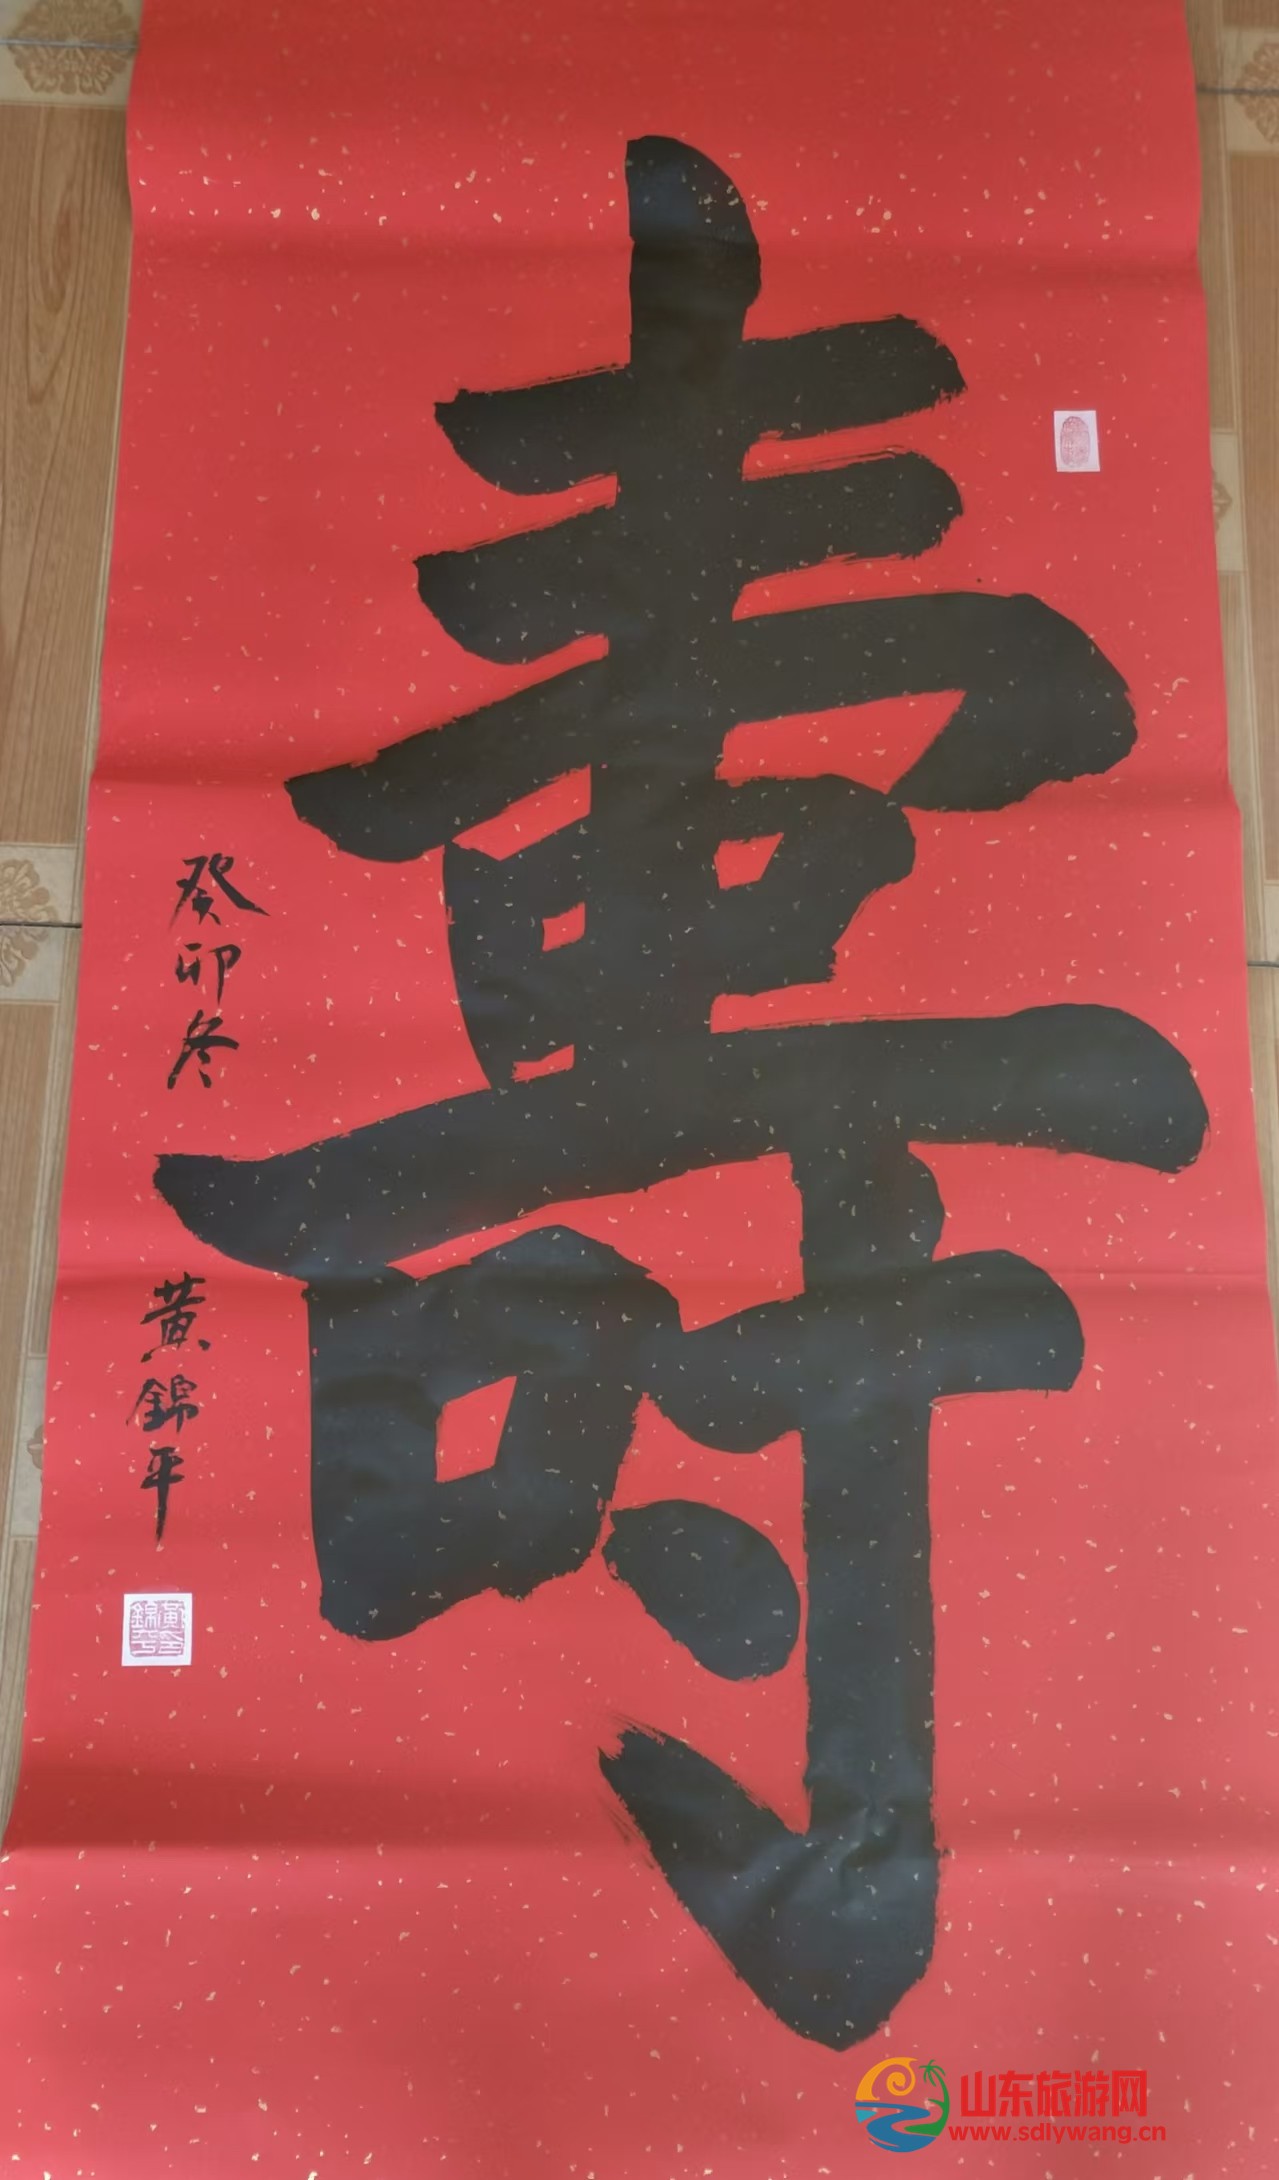 壽
癸卯冬
黄錦平
山东旅游网
www.sdlywang.cn